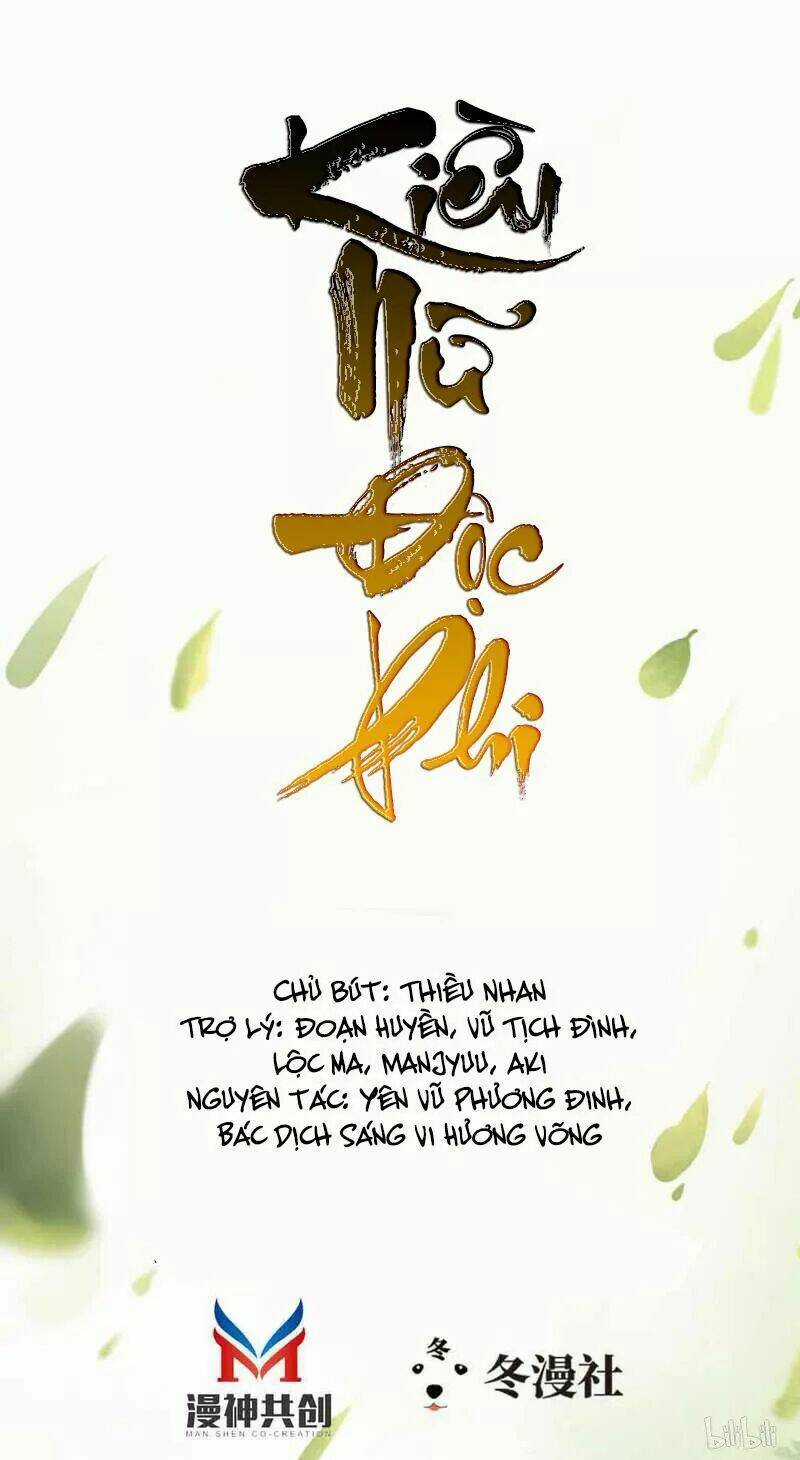 Kiều
Nữ
Độc
Phi
CHỦ BÚT: THIỀU NHAN
TRỢ LÝ: ĐOẠN HUYỀN, VŨ TỊCH ĐÌNH,
LỘC MA, MANJYUU, AKI
NGUYÊN TÁC: YÊN VŨ PHƯƠNG ĐINH,
BÁC DỊCH SÁNG VI HƯƠNG VÕNG
漫神共创
MAN SHEN CO-CREATION
冬
冬漫社
bilibili